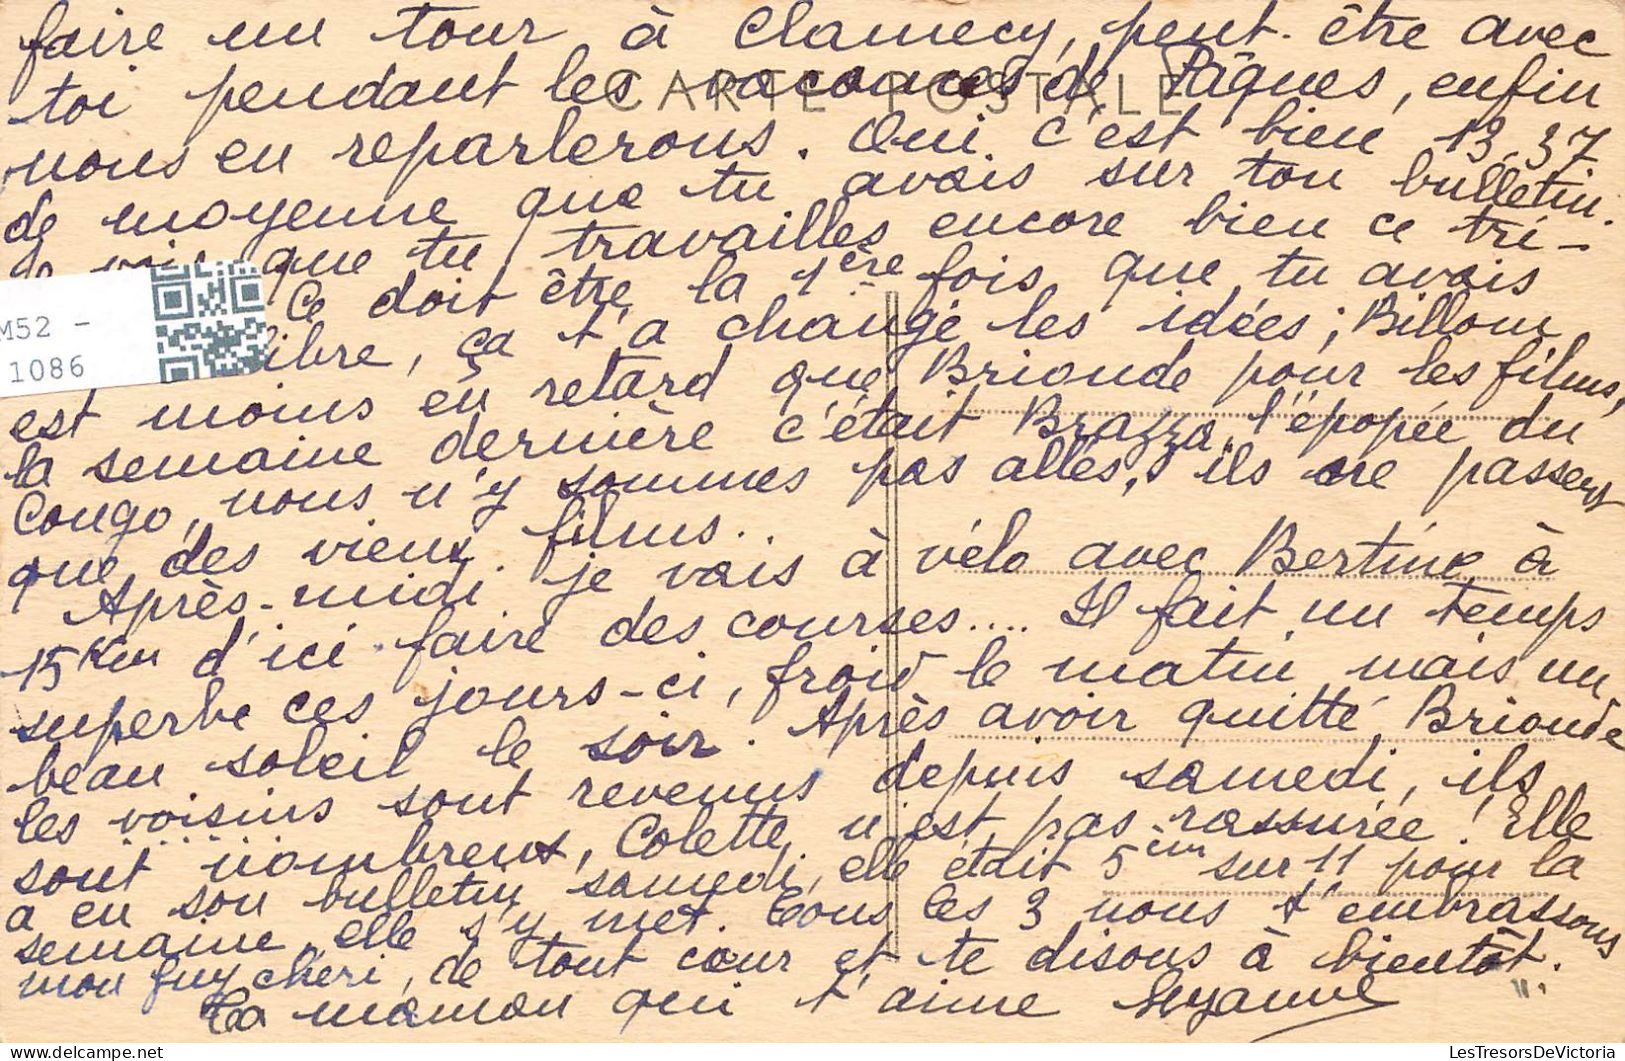 faire un tour à Clamecy, peut-être avec
CARTE POSTALE
toi pendant les vacances de Pâques, enfin
nous en reparlerons. Oui c'est bien 13,37
de moyenne que tu avais sur ton bulletin.
que tu travailles encore bien ce tri-
M52 -
Ce doit être la 1ère fois que tu avais
1086
libre, ça t'a changé les idées; Billom
est moins en retard que Brioude pour les films,
la semaine dernière c'était Brazza, l'épopée du
Congo, nous n'y sommes pas allés, ils ne passent
que des vieux films..
Après-midi je vais à vélo avec Bertine à
15 Km d'ici faire des courses.... Il fait un temps
superbe ces jours-ci, froid le matin mais un
beau soleil le soir. Après avoir quitté Brioude
les voisins sont revenus depuis samedi, ils
sont nombreux, Colette n'est pas rassurée! Elle
a eu son bulletin samedi, elle était 5èm sur 11 pour la
semaine, elle s'y met. Tous les 3 nous t'embrassons
mon Guy chéri, de tout cœur et te disons à bientôt.
Ta maman qui t'aime Suzanne
LesTresorsDeVictoria